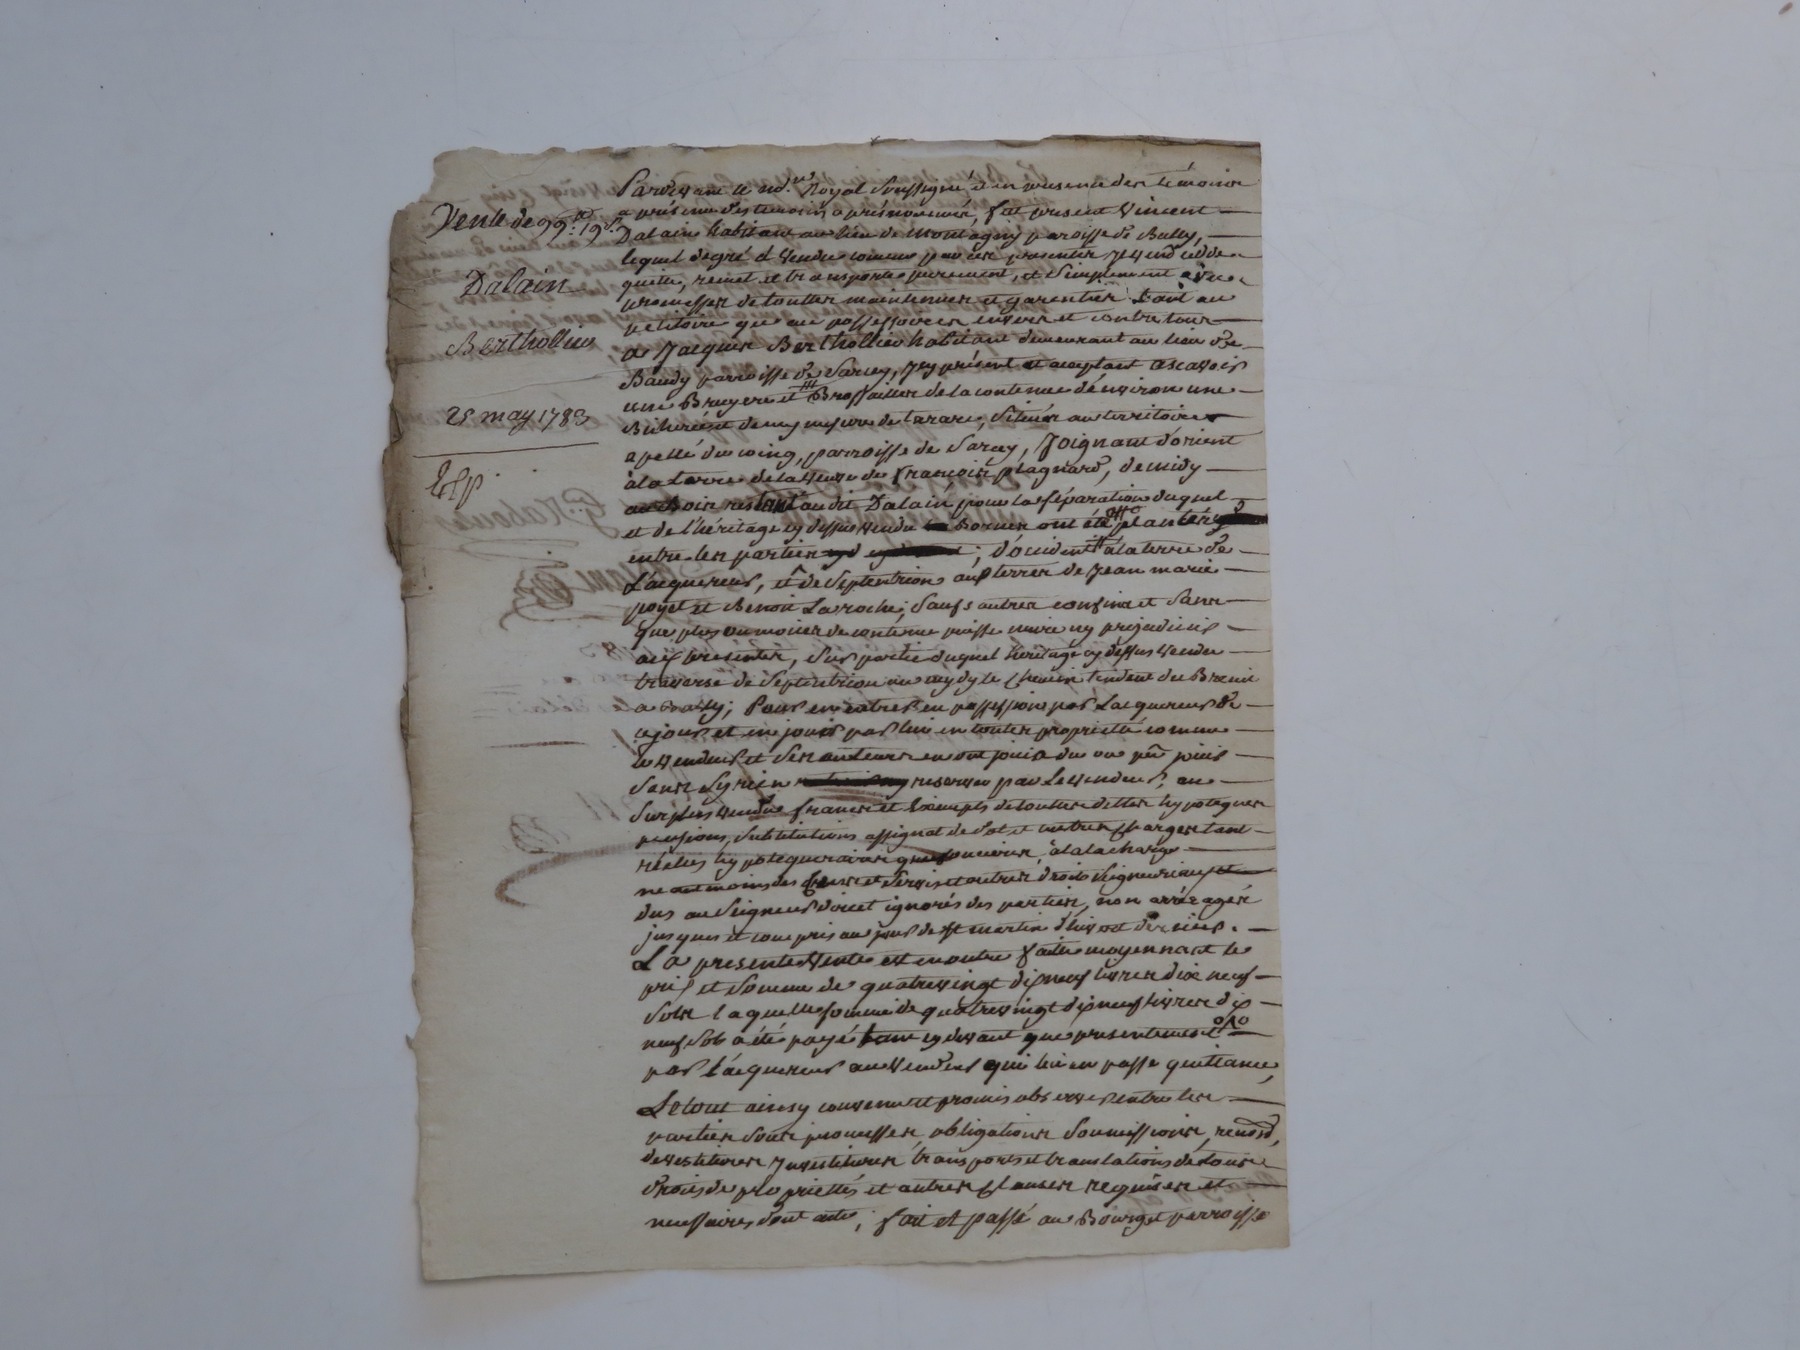 Vente de 99.# 19.s
Dalain
Berthollier
25 may 1783
Exp
Pardevant le no.re Royal soussigné et en presence des témoins
a présence des temoins aprés nommés, fut present Vincent
Dalain habitant au lieu de Montagny paroisse de Bully,
lequel de gré a vendu comme par ces presentes il vend cedde
quitte, remet et transporte purement, et simplement avec
promesses de touttes maintenues et garenties tant au
petitoire que au possessoires envers et contre tous
a Jacques Berthollier habitant demeurant au lieu de
Baudy parroisse de Sarcey, icy présent et acceptant ascavoir
une Bruyere et Brossailles de la contenue d'environ une
Bicherée et demy mesure de tarare, située au territoire
apellé du coing, parroisse de Sarcey, Joignant d'orient
a la terre de la veuve de françois plagnard, de midy
au Bois restant audit Dalain pour la séparation duquel
et de l'héritage cy dessus vendu Bornes ont été plantéz
entre les parties ; d'occident a la terre de
L'acquereur, et de Septentrion aux terres de Jean marie
poyet et Benoit Laroche; saufs autres confins et sans
que plus ou moins de contenue puisse nuire ny prejudicier
aux presentes, sur partie duquel héritage cy dessus vendu
traverse de Septentrion au mydy le chemin tendant du Breuil
a ; Pour en entrer en possession par L'acquereur de
ce jour et en jouir par luy en toutes proprieté comme
le vendeur et ses auteurs en ont jouis du ou pû jouir
sans sy rien reserver par le vendeur, au
surplus vendue franche et exempts de toutes dettes hypoteques
pensions, substitutions assignat de dot et autres charges tant
réelles hypotequeraires que foncieres, a la charge
neantmoins des cens et servis et autres droits seigneuriaux
dus au seigneur direct ignorés des parties, non arréragés
jusques et compris au jour de st martin d'hivert dernier.
La presente vente est en outre faitte moyennant le
prix et somme de quatrevingt dixneuf livres dix neuf
sols laquelle somme de quatrevingt dixneuf livres dix
neuf sols a été payé tant cy devant que presentement
par l'acquereur au vendeur qui lui en passe quittance,
Le tout ainsy convenu et promis observer entre les
parties sous promesses, obligations soumissions, renond,
devestitures investitures transports et translations de tous
droits de propriettés et autres clauses requises et
necessaires dont acte; fait et passé au Bourg et parroisse